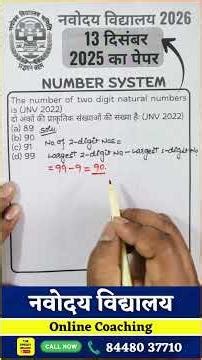 नवोदय विद्यालय 2026
13 दिसंबर
2025 का पेपर
NUMBER SYSTEM
The number of two digit natural numbers
is (JNV 2022)
दो अंकों की प्राकृतिक संख्याओं की सख्या है: (JNV 2022)
(a) 89 Soln
(b) 90 No. of 2-digit Nos =
(c) 91 Largest 2-digit No - Largest 1-digit No
(d) 99 = 99 - 9 = 90.
नवोदय विद्यालय
Online Coaching
CALL NOW
84480 37710